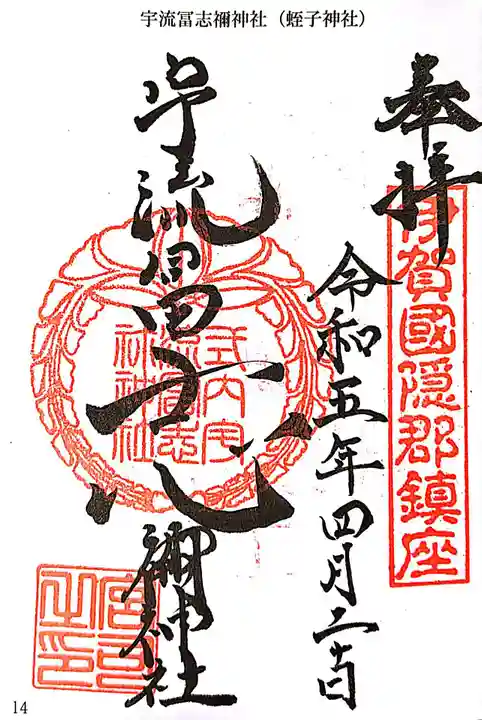 宇流冨志禰神社（蛭子神社）
奉拝
伊賀國隠郡鎮座
令和五年四月二十日
宇流冨志禰神社
式内宇
宮司
之印
14